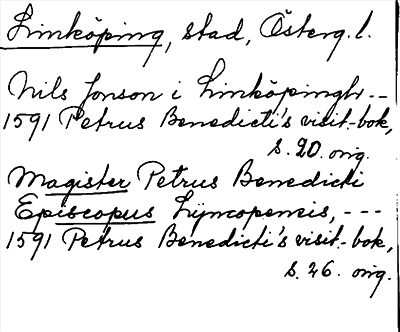 Linköping, stad, Österg. l.
Nils Jonson i Linköpingh --
1591 Petrus Benedicti's visit.-bok,
s. 20. orig.
Magister Petrus Benedicti
Episcopus Lyncopensis, ---
1591 Petrus Benedicti's visit.-bok,
s. 26. orig.